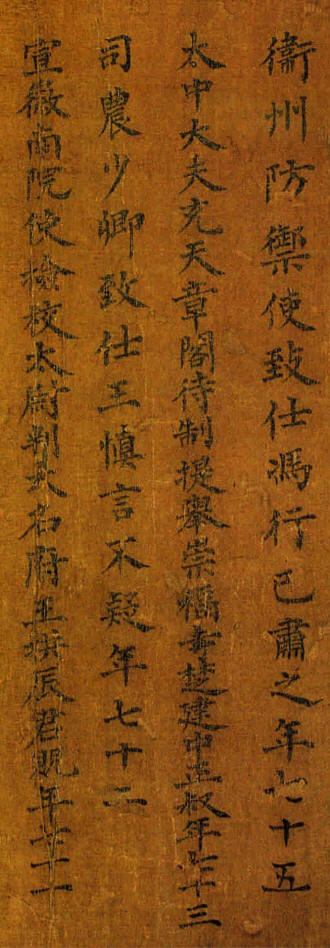 衛州防禦使致仕馮行已肅之年七十五
太中大夫充天章閣待制提舉崇福宮楚建中正叔年七十三
司農少卿致仕王慎言不疑年七十二
宣徽南院使檢校太尉判大名府王拱辰君貺年七十一